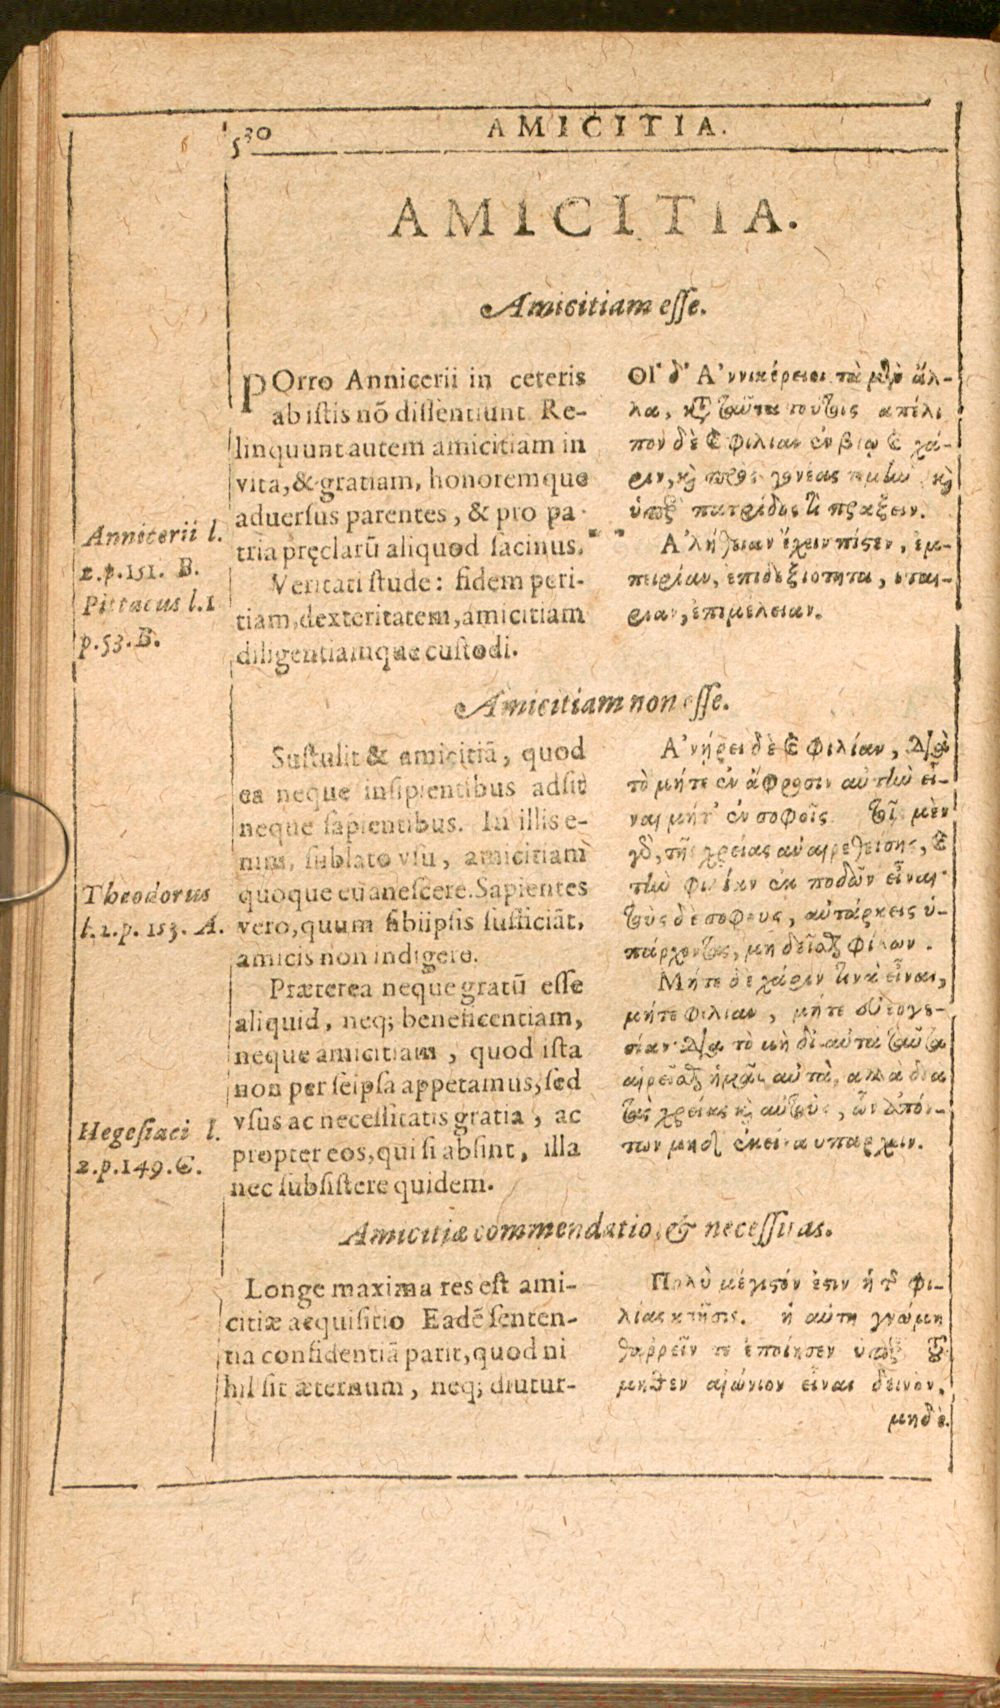 530
AMICITIA.
AMICITIA.
Amicitiam esse.
POrro Annicerii in ceteris
ab istis nō dissentiunt. Re-
linquunt autem amicitiam in
vita, & gratiam, honoremque
aduersus parentes, & pro pa-
tria pręclarū aliquod facinus.
Veritati stude: fidem peri-
tiam, dexteritatem, amicitiam
diligentiamque custodi.
Anniterii l.
2.p.151. B.
Pittacus l.1
p.53.B.
ΟΙ' δ' Α'ννικέρειοι τὰ μὲν ἄλ-
λα, κτ ταῦτα τούτοις απέλι
πον δὲ καὶ φιλίαν ἐν βίῳ καὶ χά-
ριν, καὶ πρὸς γονέας τιμὴν καὶ
ὑπὲρ πατρίδος τὶ πράξειν.
Α'λήθειαν ἔχειν πίστιν, ἐμ-
πειρίαν, ἐπιδεξιότητα, εται-
ρίαν, ἐπιμέλειαν.
Amicitiam non esse.
Sustulit & amicitiā, quod
ea neque insipientibus adsit
neque sapientibus. In illis e-
nim, sublato vsu, amicitiam
quoque euanescere. Sapientes
vero, quum sibiipsis sufficiāt,
amicis non indigere.
Præterea neque gratū esse
aliquid, neq; beneficentiam,
neque amicitiam, quod ista
non per seipsa appetamus, sed
vsus ac necessitatis gratia, ac
propter eos, qui si absint, illa
nec subsistere quidem.
Theodorus
l.2.p.153. A.
Hegesiaci l.
2.p.149.C.
Α'νήρει δὲ καὶ φιλίαν, διὰ
τὸ μήτε ἐν ἄφροσιν αὐτὴν εἶ-
ναι μήτ' ἐν σοφοῖς. τοῖς μὲν
γὰρ, τῆς χρείας αναιρεθείσης, καὶ
τὴν φιλίαν ἐκ ποδῶν εἶναι·
τοὺς δὲ σοφους, αὐτάρκεις ὑ-
πάρχοντας, μὴ δεῖσθαι φίλων.
Μήτε δε χάριν τινὰ εἶναι,
μήτε φιλίαν, μήτε εὐεργε-
σίαν· διὰ τὸ μὴ δι αυτα ταῦτα
αἱρεῖσθαι ἡμᾶς αὐτὰ, αλλα δια
τὰς χρείας καὶ αὐτοὺς, ὧν ἀπόν-
των μηδὲ ἐκείνα υπαρχειν.
Amicitiæ commendatio, & necessitas.
Longe maxima res est ami-
citiæ acquisitio Eadē senten-
tia confidentiā parit, quod ni
hil sit æternum, neq; diutur-
Πολὺ μέγιστόν ἐστιν ἡ τῆς φι-
λίας κτῆσις. ἡ αὐτὴ γνώμη
θαρρεῖν τε ἐποίησεν ὑπὲρ τοῦ
μηθὲν αἰώνιον εἶναι δεινὸν,
μηδὲ